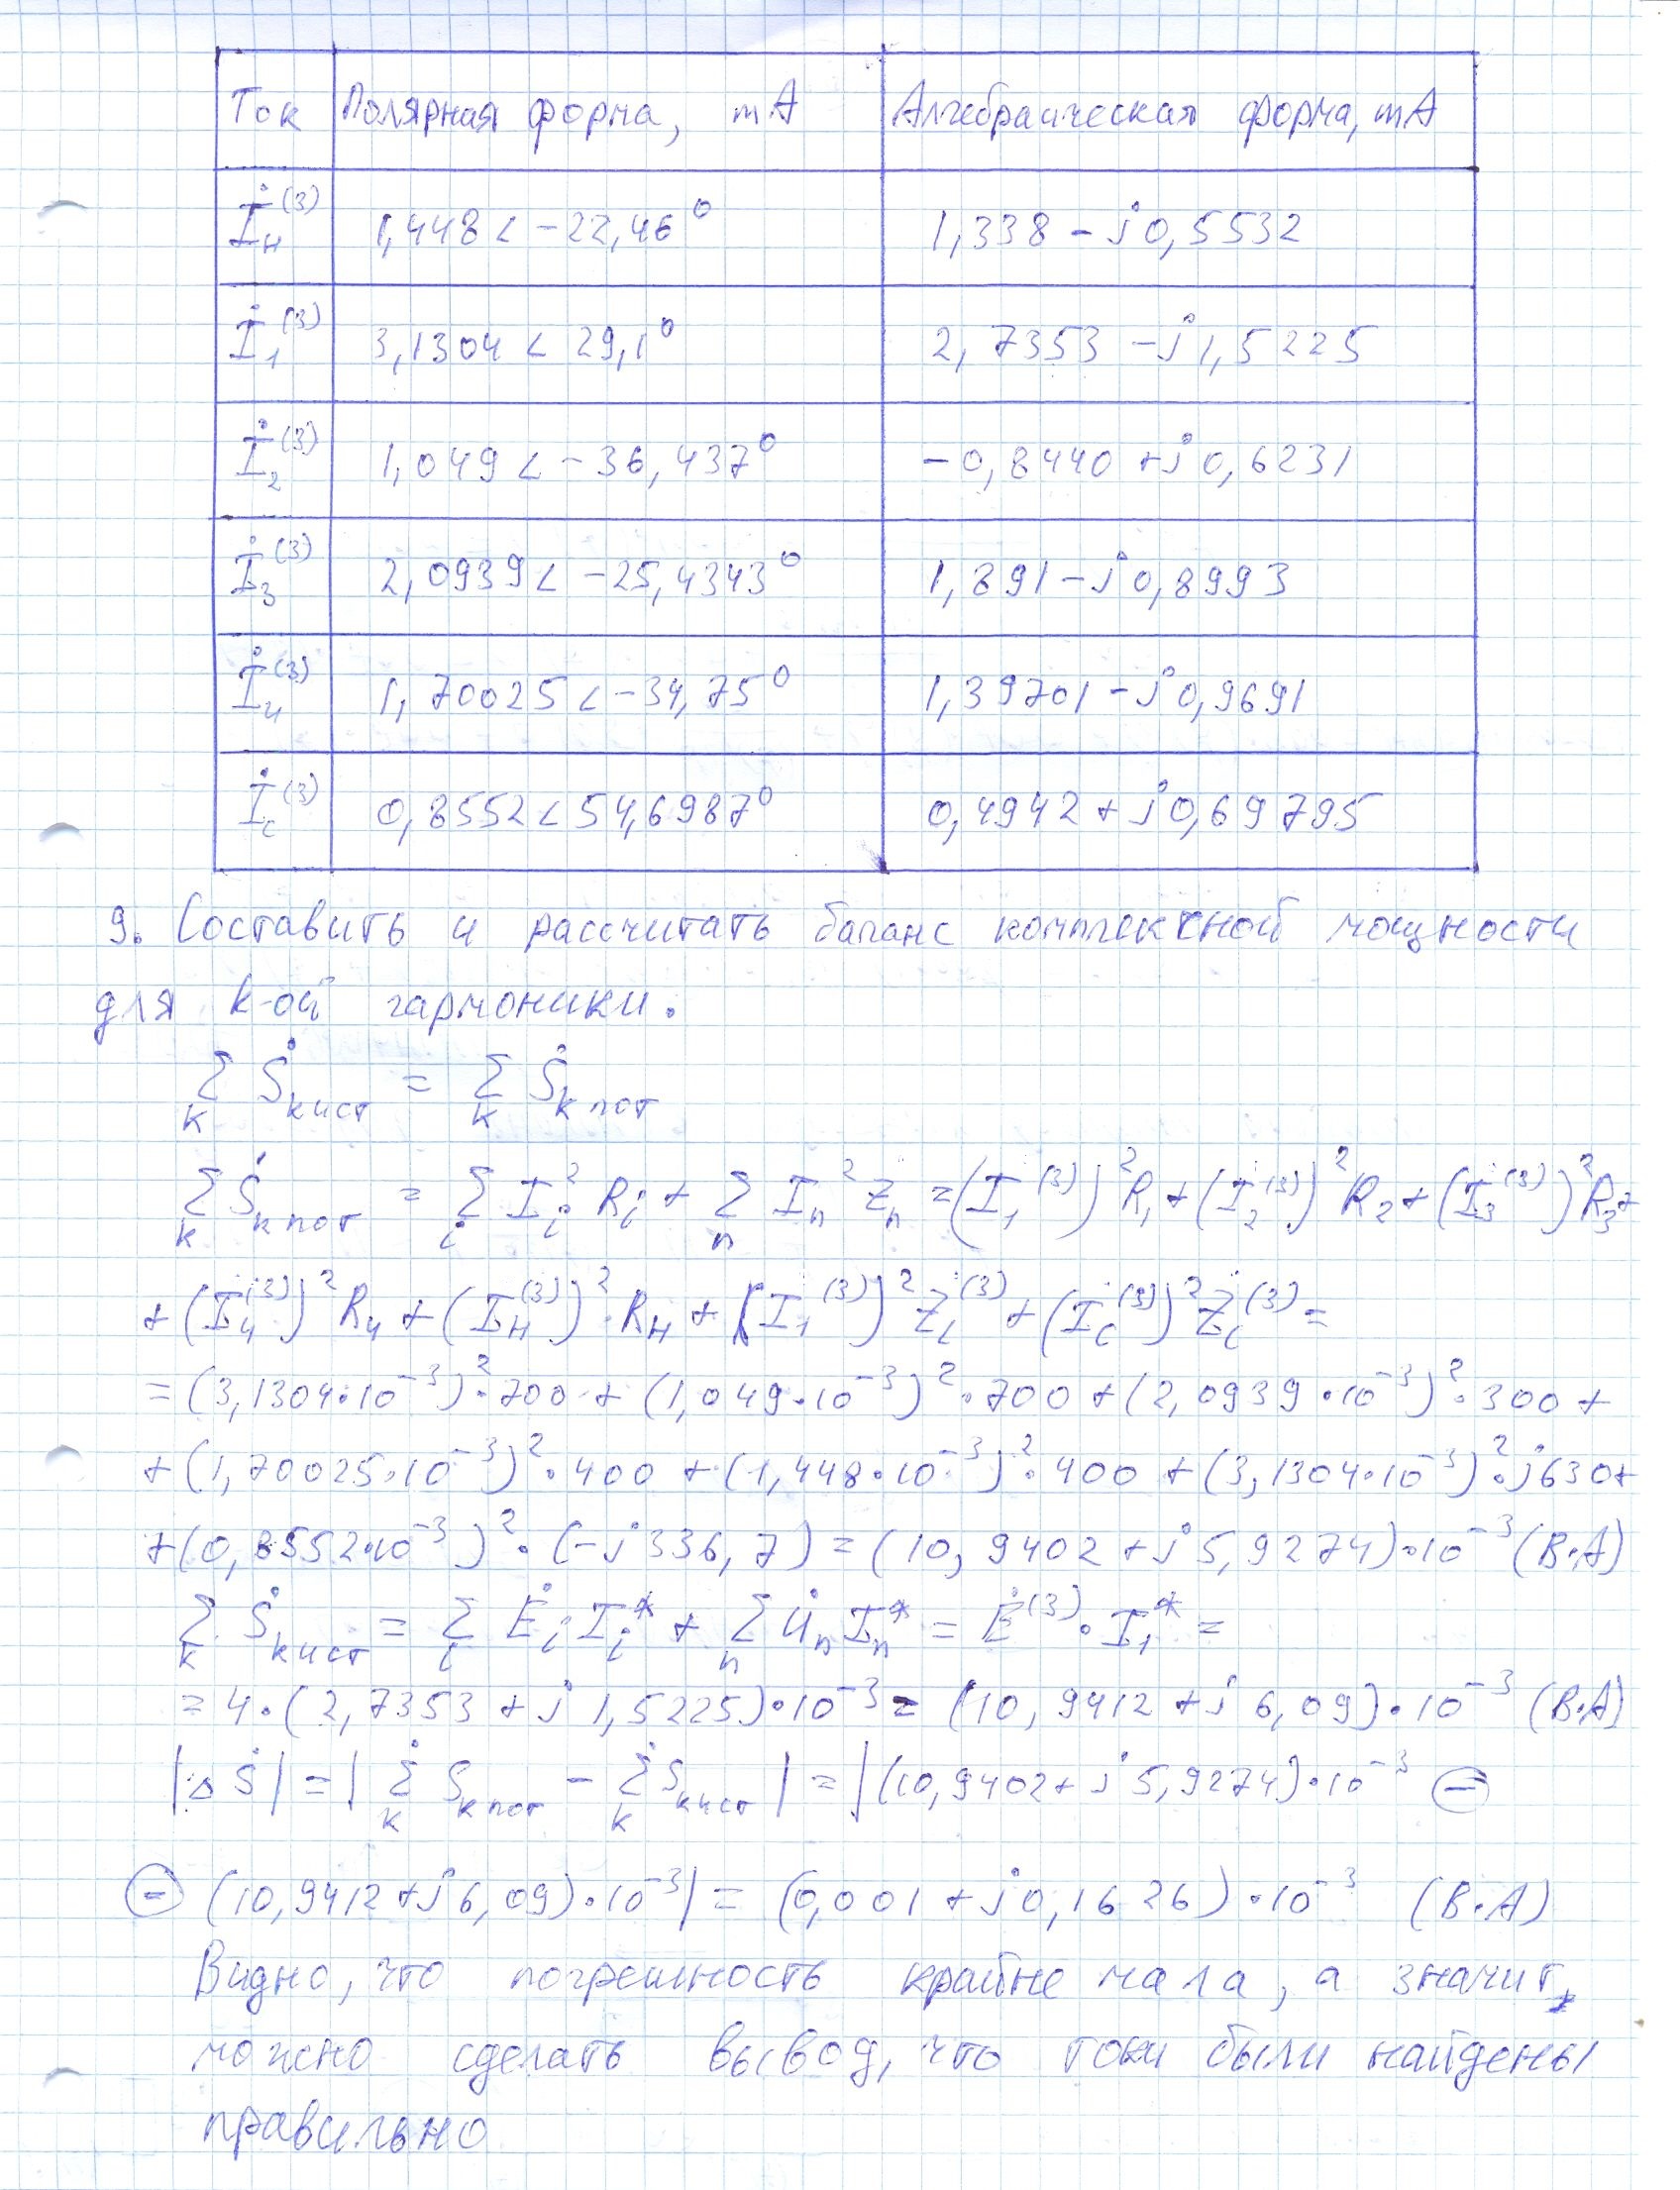 Ток Полярная форма, mA Алгебраическая форма, mA
İн⁽³⁾ 1,448 < -22,46° 1,338 - j0,5532
İ₁⁽³⁾ 3,1304 < 29,1° 2,7353 - j1,5225
İ₂⁽³⁾ 1,049 < -36,437° -0,8440 + j0,6231
İ₃⁽³⁾ 2,0939 < -25,4343° 1,891 - j0,8993
İ₄⁽³⁾ 1,70025 < -34,75° 1,39701 - j0,9691
İc⁽³⁾ 0,8552 < 54,6987° 0,4942 + j0,69795
9. Составить и рассчитать баланс комплексной мощности
для k-ой гармоники.
∑k Ṡk ист = ∑k Ṡk пот
∑k Ṡk пот = ∑i Ii² Ri + ∑n In² Zn = (I₁⁽³⁾)² R₁ + (I₂⁽³⁾)² R₂ + (I₃⁽³⁾)² R₃ +
+ (I₄⁽³⁾)² R₄ + (Iн⁽³⁾)² · Rн + (I₁⁽³⁾)² ZL⁽³⁾ + (Ic⁽³⁾)² Zc⁽³⁾ =
= (3,1304·10⁻³)²·700 + (1,049·10⁻³)²·700 + (2,0939·10⁻³)²·300 +
+ (1,70025·10⁻³)²·400 + (1,448·10⁻³)²·400 + (3,1304·10⁻³)²·j630 +
+ (0,8552·10⁻³)²·(-j336,7) = (10,9402 + j5,9274)·10⁻³ (В·А)
∑k Ṡk ист = ∑i Ėi Ii* + ∑n U̇n In* = Ė⁽³⁾ · I₁* =
= 4·(2,7353 + j1,5225)·10⁻³ = (10,9412 + j6,09)·10⁻³ (В·А)
|ΔṠ| = |∑k Ṡk пот - ∑k Ṡk ист| = |(10,9402 + j5,9274)·10⁻³ ⊖
⊖ (10,9412 + j6,09)·10⁻³| = (0,001 + j0,1626)·10⁻³ (В·А)
Видно, что погрешность крайне мала, а значит,
можно сделать вывод, что токи были найдены
правильно